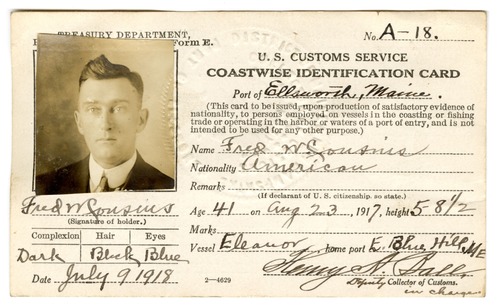 TREASURY DEPARTMENT,
Form E.
No. A-18.
U. S. CUSTOMS SERVICE
COASTWISE IDENTIFICATION CARD
Port of Ellsworth, Maine.
(This card to be issued, upon production of satisfactory evidence of
nationality, to persons employed on vessels in the coasting or fishing
trade or operating in the harbor or waters of a port of entry, and is not
intended to be used for any other purpose.)
Name Fred W Cousins
Nationality American
Remarks
(If declarant of U. S. citizenship, so state.)
Age 41 on Aug 23, 1917, height 5 8 1/2
Marks
Vessel Eleanor home port E. Blue Hill, ME
Henry
Deputy Collector of Customs.
in charge
Fred W Cousins
(Signature of holder.)
Complexion Hair Eyes
Dark Black Blue
Date July 9 1918
2—4629